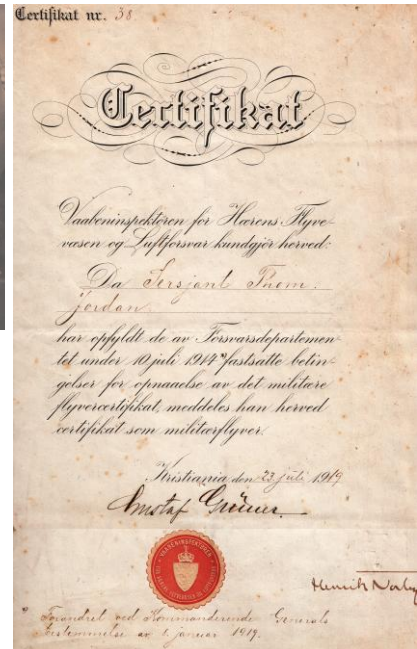 Certifikat nr. 38
Certifikat
Vaabeninspektøren for Hærens Flyve-
væsen og Luftforsvar kundgjør herved:
Da Sersjant Thom.
Jordan.
har opfyldt de av Forsvarsdepartemen-
tet under 10 juli 1914 *) fastsatte betin-
gelser for opnaaelse av det militære
flyvercertifikat, meddeles han herved
certifikat som militærflyver.
Kristiania den 23 juli 1919
Gustaf Grüner
VAABENINSPEKTØREN
Henrik
Forandret ved Kommanderende Generals
Bestemmelse av 1. januar 1919.